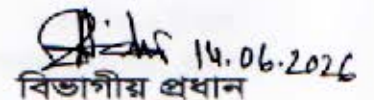 14.06.2026
বিভাগীয় প্রধান